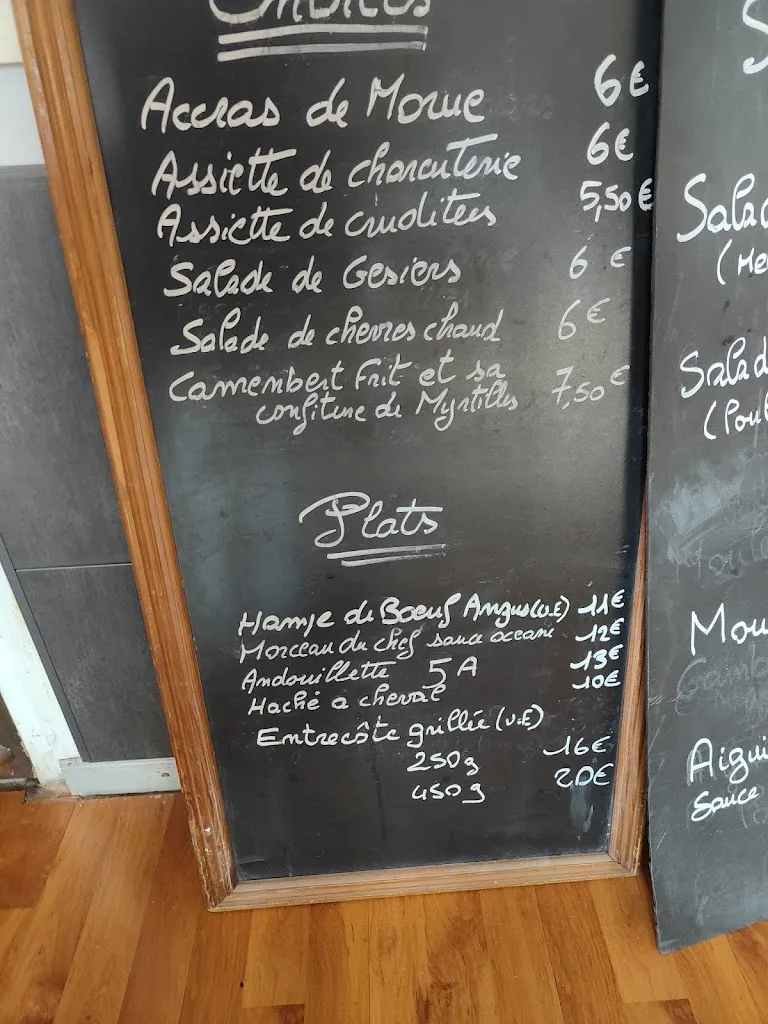 Accras de Morue 6€
Assiette de charcuterie 6€
Assiette de cruditees 5,50€
Salade de Gesiers 6 €
Salade de chevres chaud 6€
Camembert Frit et sa
confiture de Myrtilles 7,50€
Plats
Hampe de Boeuf Angus (U.E) 11€
Morceau du chef sauce oceane 12€
Andouillette 5A 13€
Haché a cheval 10€
Entrecôte grillée (U.E)
250g 16€
450g 20€
Sauce